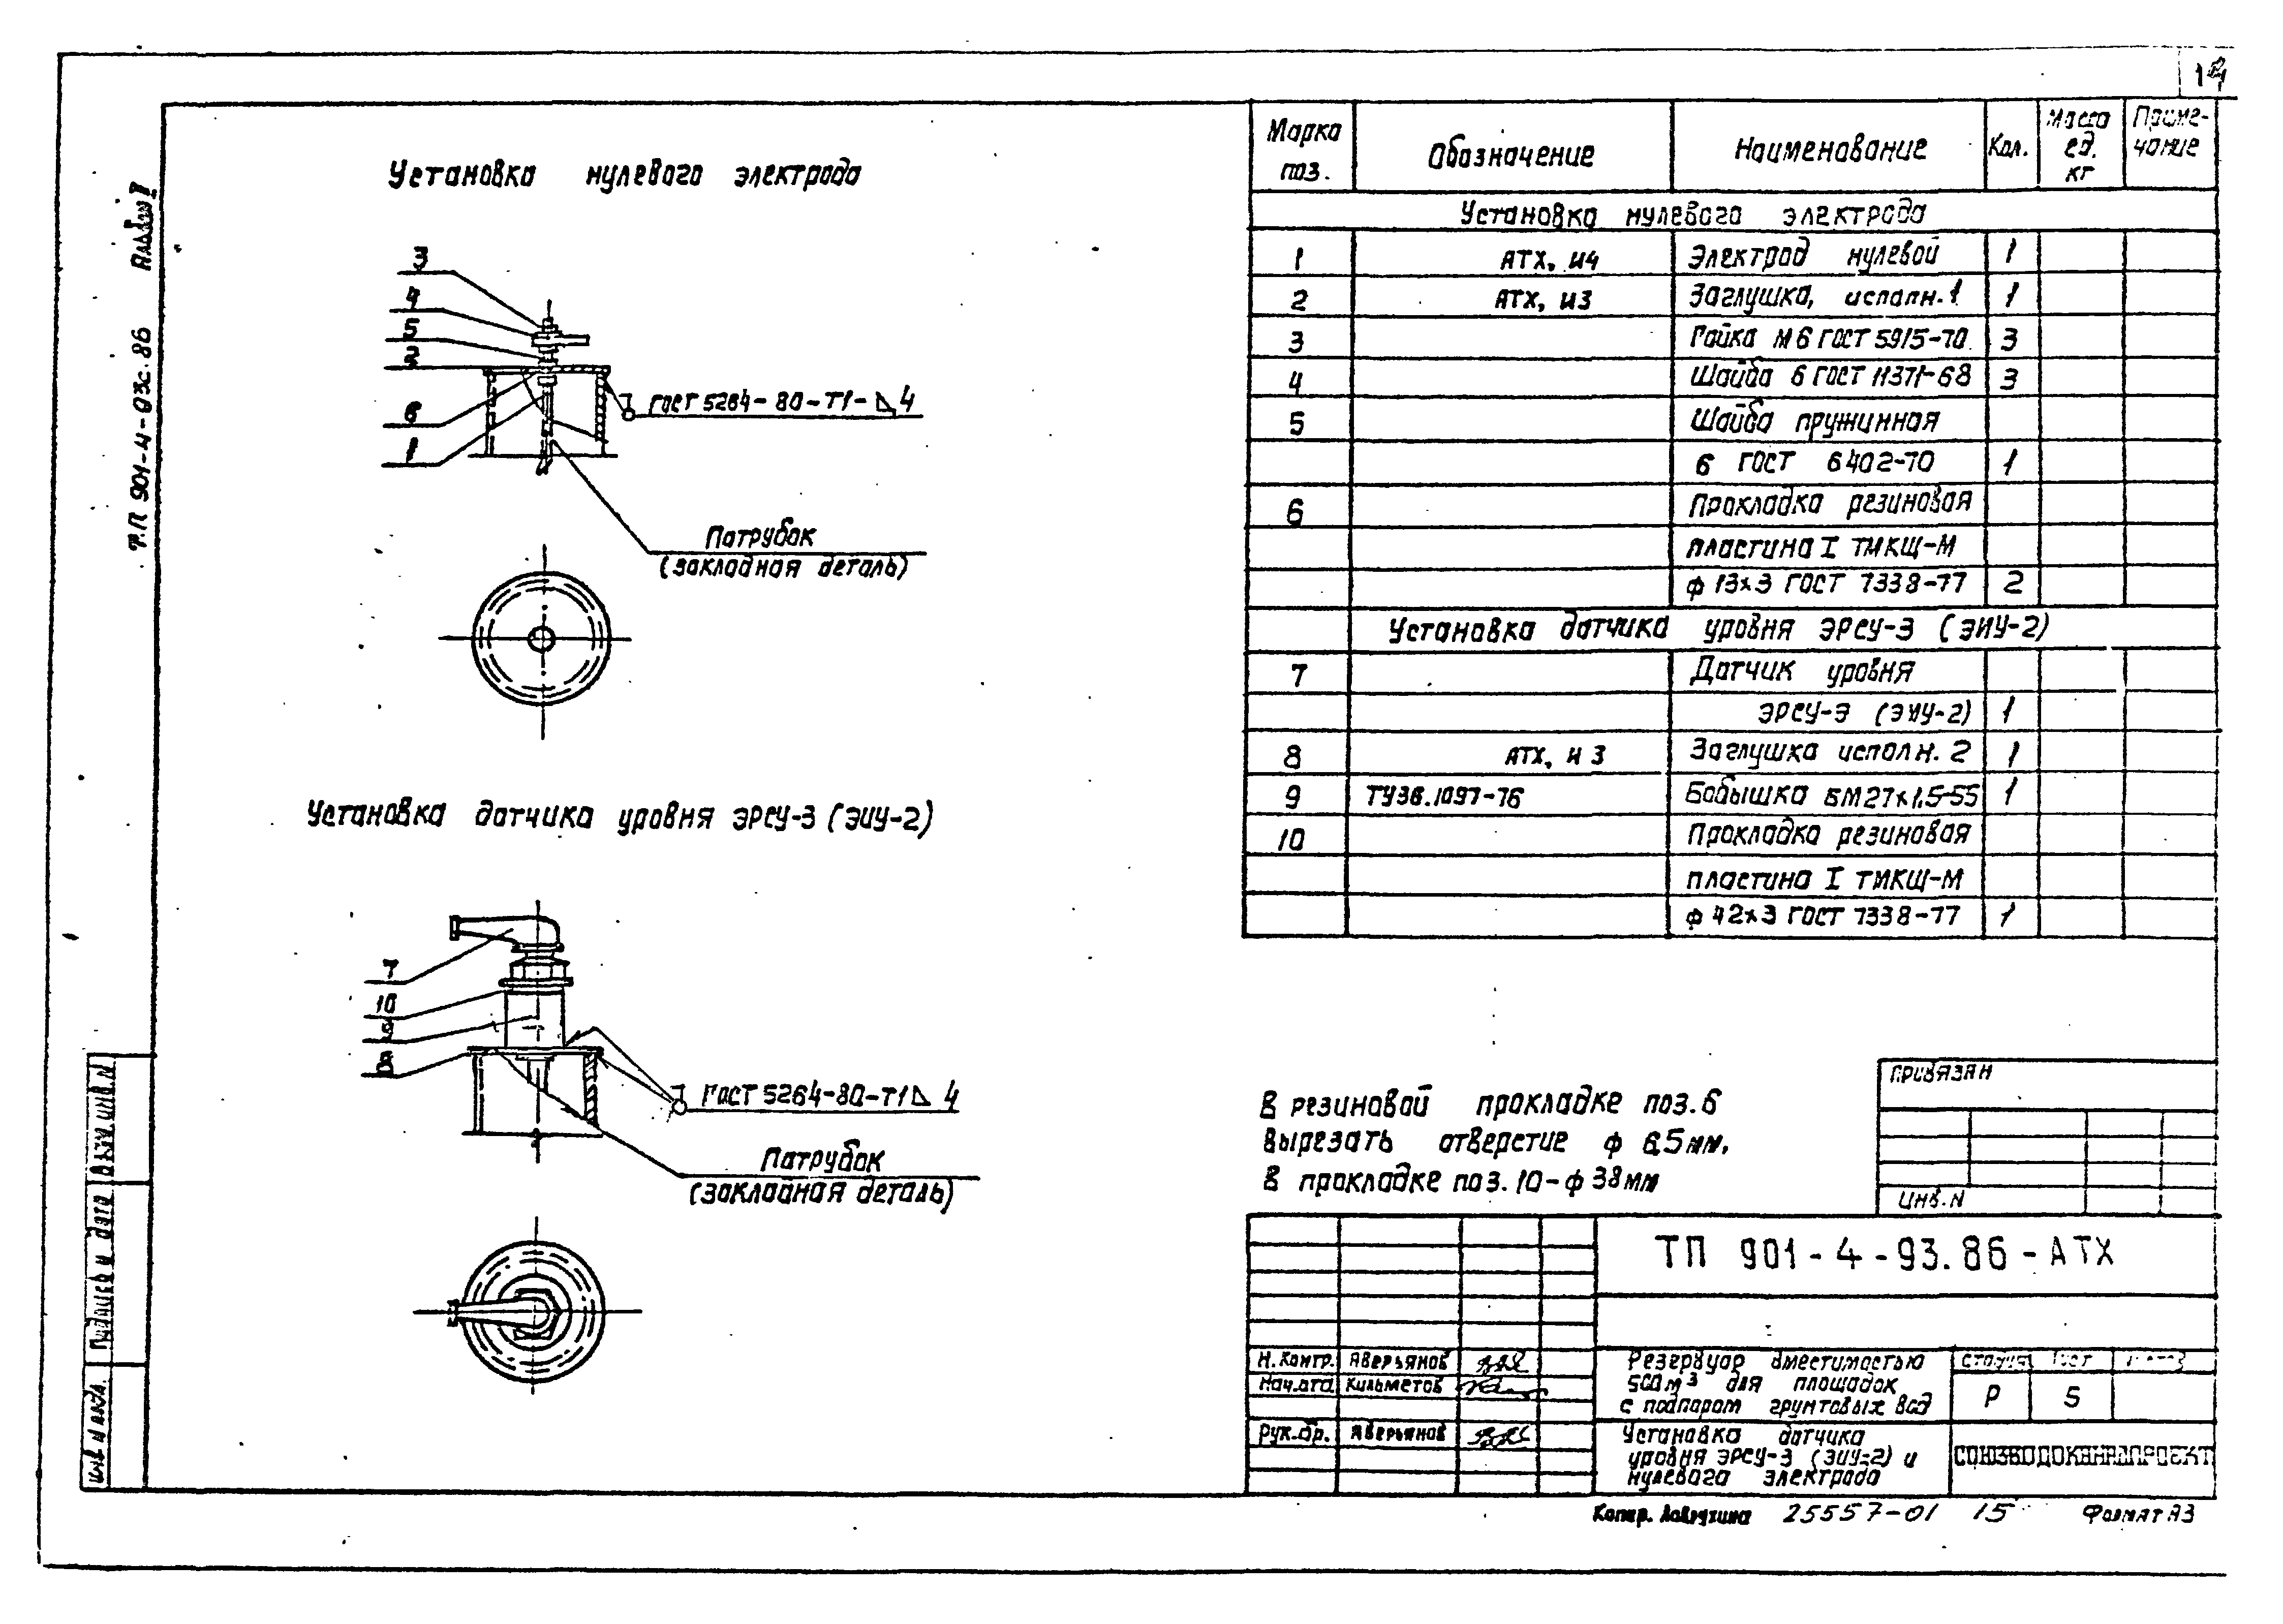 14
Альбом II
Т.П 901-4-93с.86
Установка нулевого электрода
3
4
5
2
6
1
ГОСТ 5264-80-Т1-△4
Патрубок
(закладная деталь)
Установка датчика уровня ЭРСУ-3 (ЭИУ-2)
7
10
9
8
ГОСТ 5264-80-Т1△4
Патрубок
(закладная деталь)
Марка поз. Обозначение Наименование Кол. Масса ед. кг Примечание
Установка нулевого электрода
1 АТХ, И4 Электрод нулевой 1
2 АТХ, И3 Заглушка, исполн. 1 1
3 Гайка М6 ГОСТ 5915-70. 3
4 Шайба 6 ГОСТ 11371-68 3
5 Шайба пружинная
6 ГОСТ 6402-70 1
6 Прокладка резиновая
пластина I ТМКЩ-М
ф 13х3 ГОСТ 7338-77 2
Установка датчика уровня ЭРСУ-3 (ЭИУ-2)
7 Датчик уровня
ЭРСУ-3 (ЭИУ-2) 1
8 АТХ, И 3 Заглушка исполн. 2 1
9 ТУ36.1097-76 Бобышка БМ27х1,5-55 1
10 Прокладка резиновая
пластина I ТМКЩ-М
ф 42х3 ГОСТ 7338-77 1
В резиновой прокладке поз.6
вырезать отверстие ф 6,5мм,
В прокладке поз.10-ф 38мм
Привязан
Инв. N
ТП 901-4-93.86-АТХ
Н. Контр. Аверьянов
Нач.отд Кильметов
Рук.бр. Аверьянов
Резервуар вместимостью
500м³ для площадок
с подпором грунтовых вод
Стадия Лист Листов
Р 5
Установка датчика
уровня ЭРСУ-3 (ЭИУ-2) и
нулевого электрода
СОЮЗВОДОКАНАЛПРОЕКТ
Взам. инв. N
Подпись и дата
Инв. N подл.
Копир. 25557-01 15 Формат А3